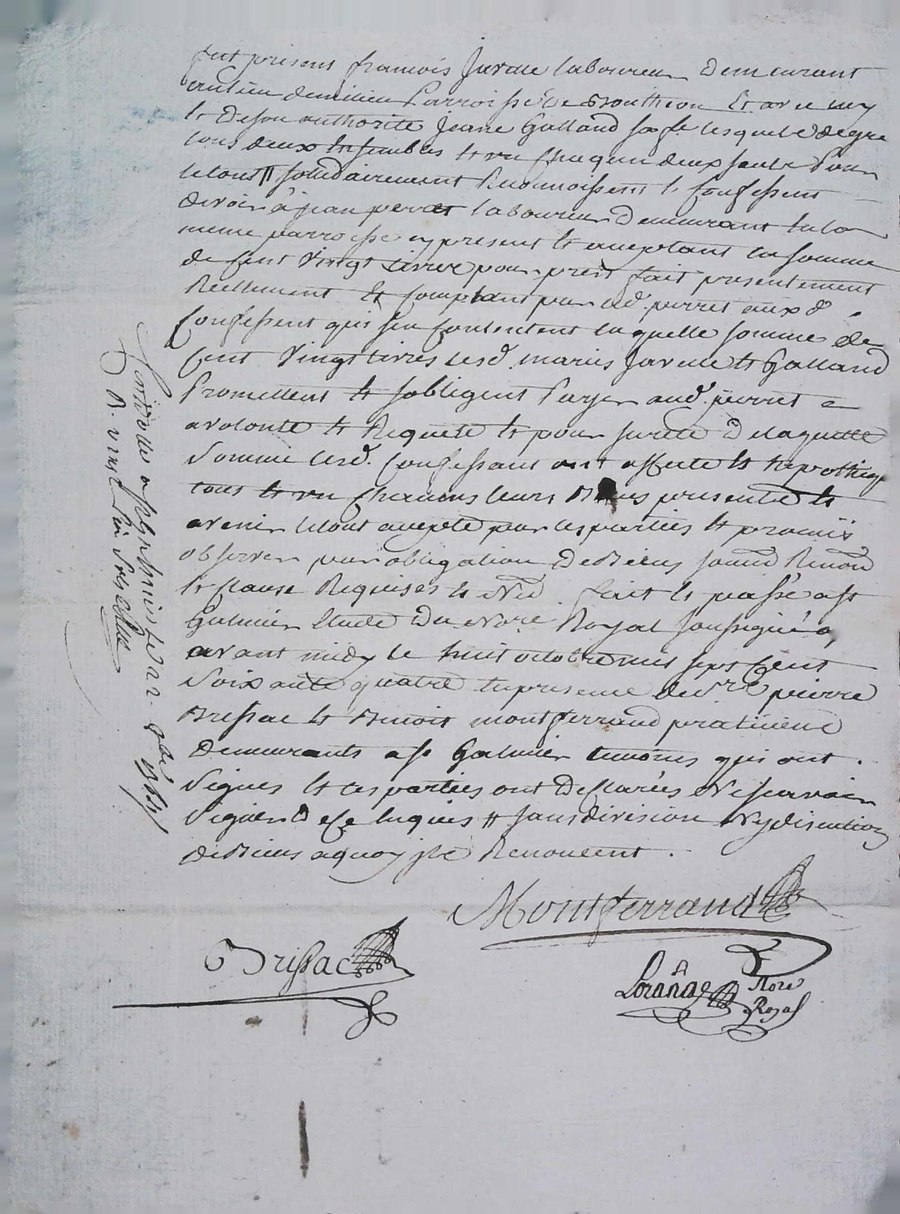 fut présent francois Javelle laboureur Demeurant
au lieu demilieu Parroisse De Boutheon Et avec luy
Et Deson authorité Jeane Galland sa fe lesquels de gre
tous deux Ensembles et un Chaqun deux seul Pour
letout ⁋ solidairement Reconnoissent Et Confessent
devoir à jean perret laboureur Demeurant En la
meme parroisse cy present Et aceptant la somme
de Cent Vingt livres pour prest fait presentement
Reellement Et Comptant par led. perret aux d.
Confessent qui sen Contentent laquelle somme de
Cent Vingt livres lesd. mariés Javelle Et Galland
Promettent Et sobligent Payer aud. perret a
avolonté Et Requete Et pour sureté Delaquelle
Somme lesd. Confessans ont affecté Et hipothéqué
tous Et un Chacuns leurs Biens presents Et
avenir letout acepté par les parties Et promis
observer par obligation De Biens soum Renon
Et Clause Requises Et Nrē. fait Et passé a St
Galmier Etude Du Nore Royal soussigné
avant midy le huit octobre mil sept Cent
Soixante quatre En presence de Sr pierre
Brissac Et Benoit montferrand praticiens
Demeurants a St Galmier temoins qui ont
signés Et les parties ont Declarés Ne scavoir
signer De ce Enquis ⁋ sans division Ny discution
de Biens aquoy ils Renoncent .
Montferrand
Brissac
Lorange
Nore
Royal
Controllé a St galmier le 9bre 1764
R. vingt six sols